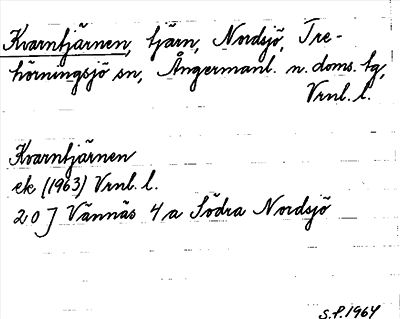 Kvarntjärnen, tjärn, Nordsjö, Tre-
hörningsjö sn, Ångermanl. n. doms. tg,
Vrnl. l.
Kvarntjärnen
ek (1963) Vrnl. l.
20J Vännäs 4a Södra Nordsjö
S.P. 1964